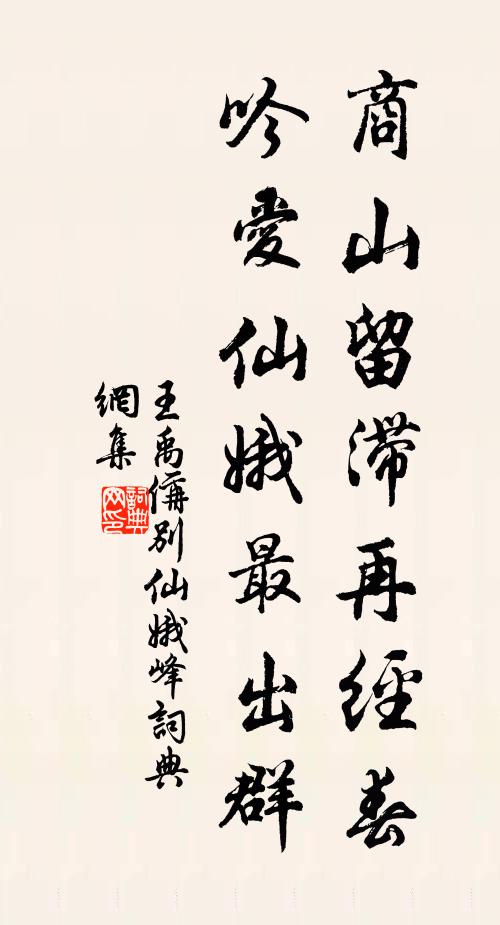 商山留滯再經春
吟愛仙娥最出群
王禹偁別仙娥峰詞典
網集
詞典
网印